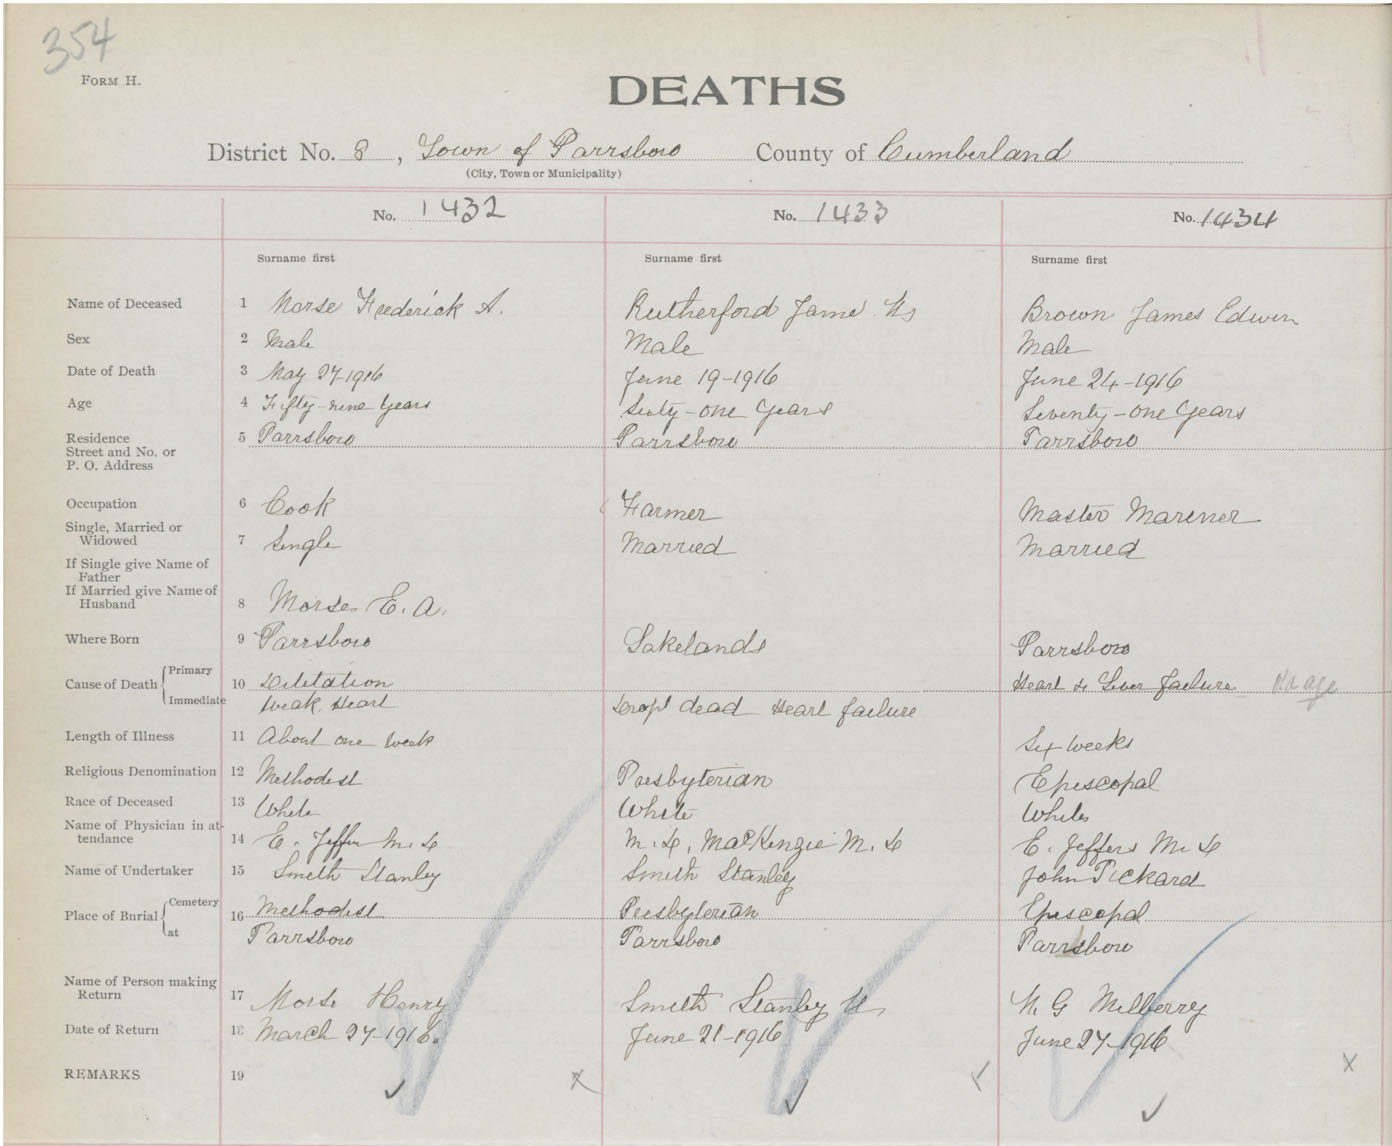 354
FORM H.
DEATHS
District No. 8, Town of Parrsboro County of Cumberland
(City, Town or Municipality)
No. 1432 No. 1433 No. 1434
Surname first Surname first Surname first
Name of Deceased 1 Morse Frederick A. Rutherford Jame Brown James Edwin
Sex 2 Male Male Male
Date of Death 3 May 27-1916 June 19-1916 June 24-1916
Age 4 Fifty-nine Years Sixty-one Years Seventy-one Years
Residence 5 Parrsboro Parrsboro Parrsboro
Street and No. or
P. O. Address
Occupation 6 Cook Farmer Master Mariner
Single, Married or
Widowed 7 Single Married Married
If Single give Name of
Father
If Married give Name of
Husband 8 Morse E. A.
Where Born 9 Parrsboro Lakelands Parrsboro
Cause of Death Primary 10 Diletation Heart & Liver failure
Immediate Weak Heart Dropt dead Heart failure
Length of Illness 11 About one week Six weeks
Religious Denomination 12 Methodist Presbyterian Episcopal
Race of Deceased 13 White White White
Name of Physician in at-
tendance 14 E. Jeffers M. D M. D, MacKenzie M. D E. Jeffers M. D
Name of Undertaker 15 Smith Stanley Smith Stanley John Pickard
Place of Burial Cemetery 16 Methodist Presbyterian Episcopal
at Parrsboro Parrsboro Parrsboro
Name of Person making
Return 17 Morse Henry Smith Stanley G Milberry
Date of Return 18 March 27-1916. June 21-1916 June 27-1916
REMARKS 19